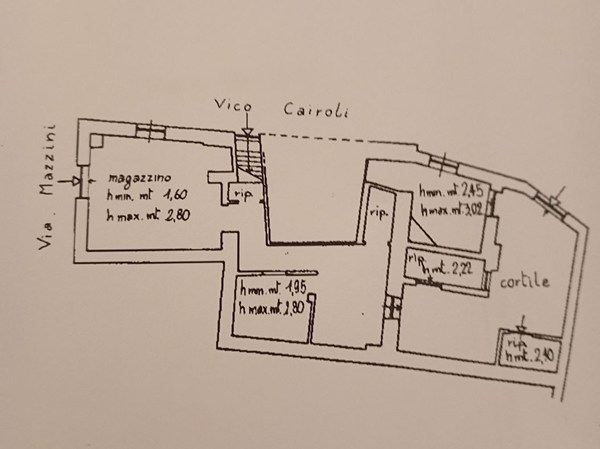 Vico Cairoli
Via Mazzini
magazzino
h min. mt 1,60
h max. mt 2,80
rip.
rip.
h min. mt 2,45
h max. mt. 3,02
rip.
h mt. 2,22
cortile
h min. mt 1,95
h max. mt. 2,80
rip.
h mt. 2,10